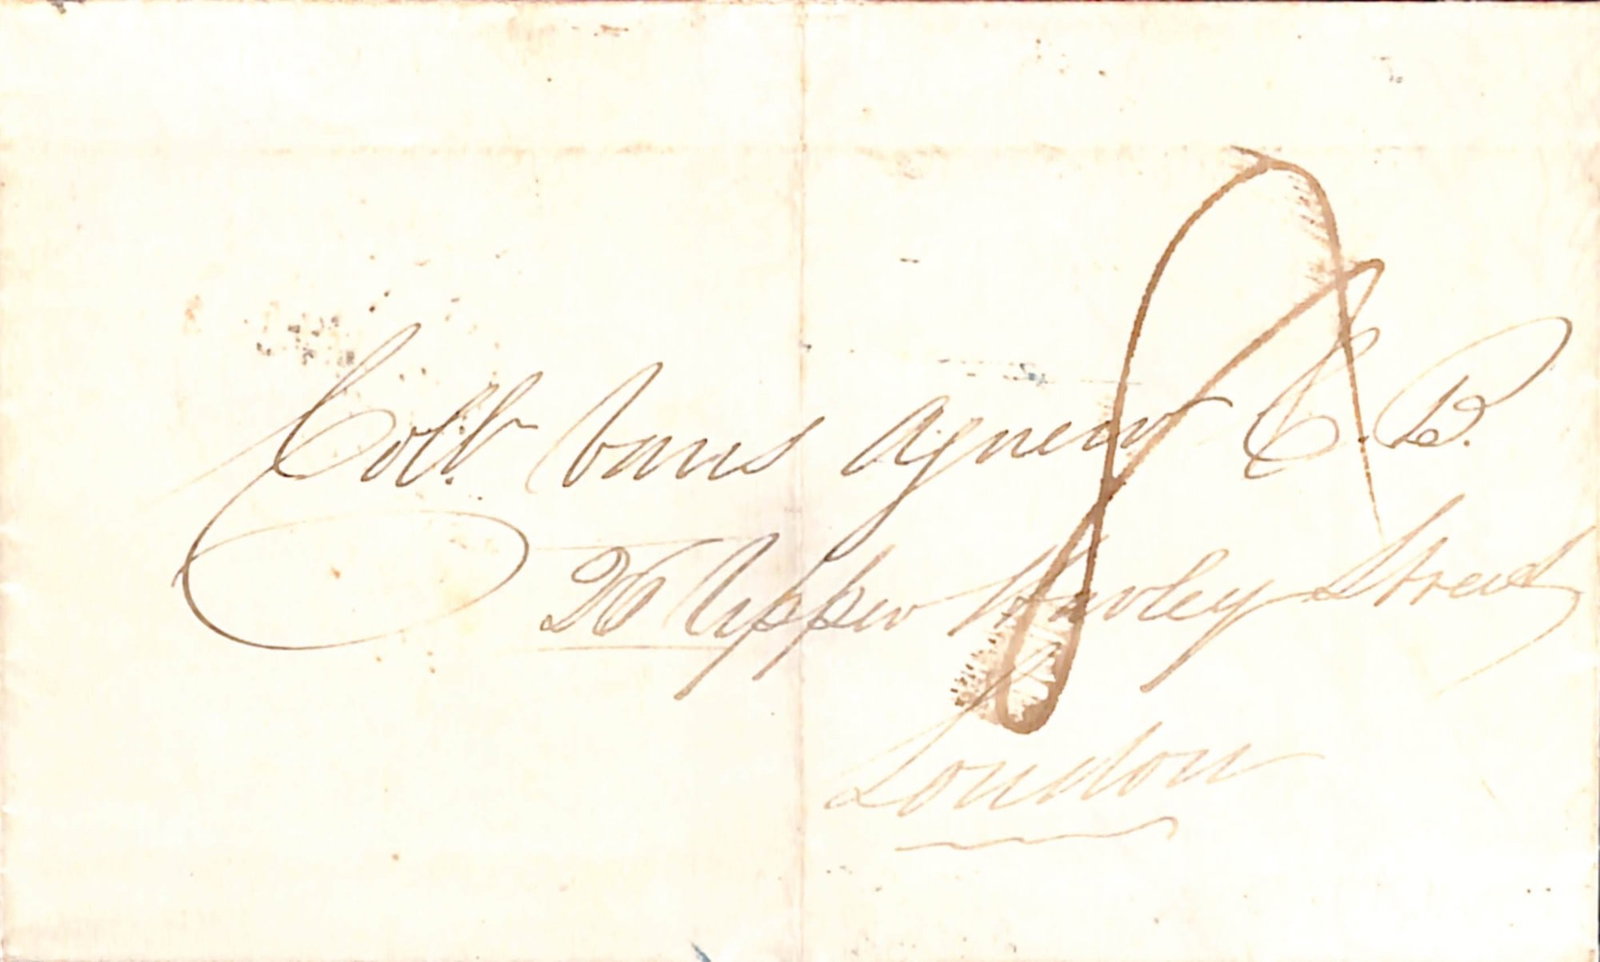 Coll. Vans Agnew C.B.
26 Upper Harley Street
London